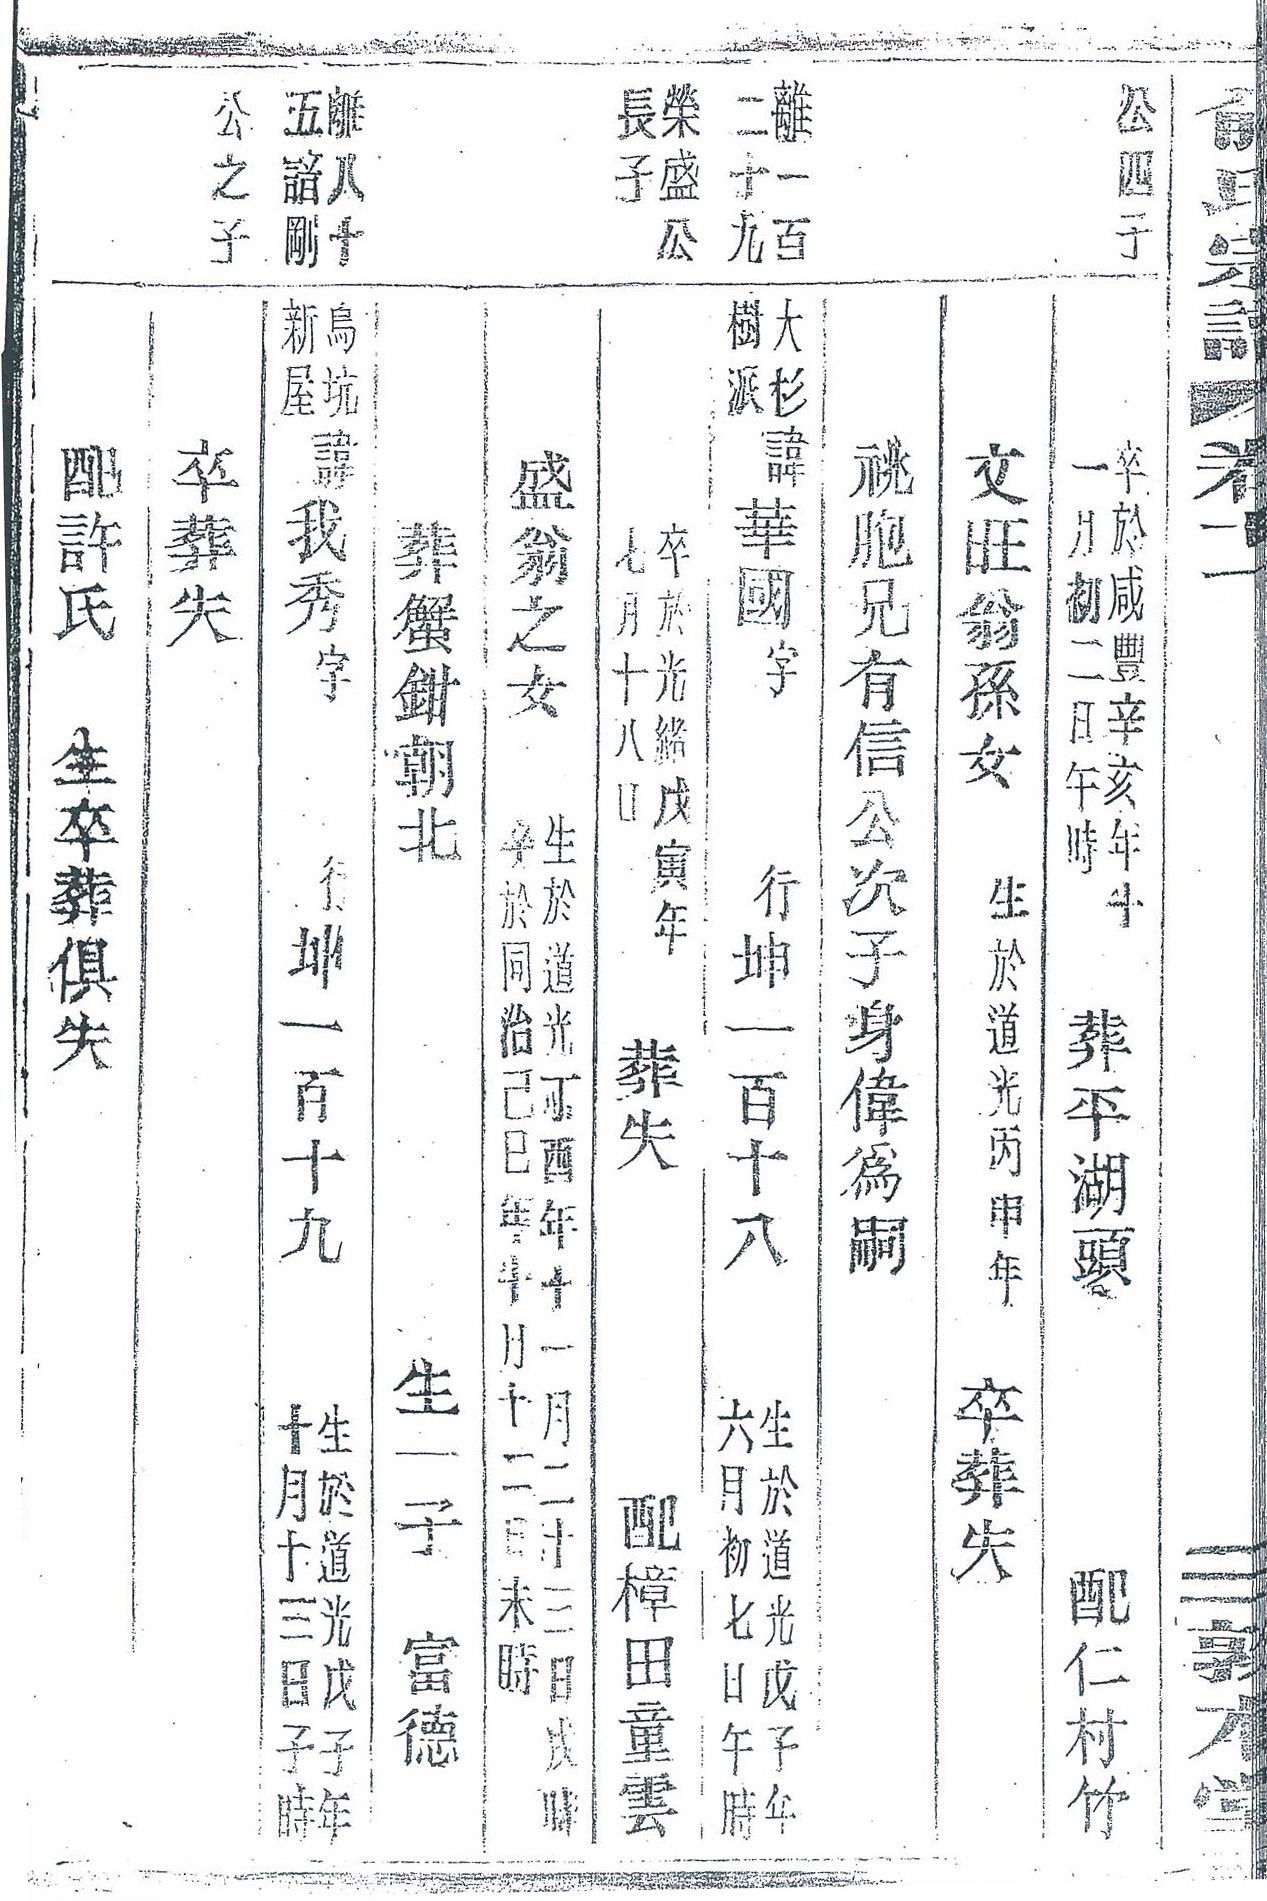 俞氏宗譜 卷二 三 敦本堂
公四子
卒於咸豐辛亥年十
一月初二日午時
葬平湖頭 配仁村竹
文旺翁孫女 生於道光丙申年 卒葬失
祧胞兄有信公次子身偉為嗣
離一百
二十九
大杉
樹派
諱華國字 行坤一百十八
生於道光戊子年
六月初七日午時
榮盛公
長子
卒於光緒戊寅年
七月十八日
葬失 配樟田童雲
盛翁之女
生於道光丁酉年十一月二十三日戌時
卒於同治己巳年十月十二日未時
葬蟹鉗朝北 生一子 富德
離八十
五諳剛
烏坑
新屋
諱我秀字 行坤一百十九
生於道光戊子年
十月十三日子時
公之子
卒葬失
配許氏 生卒葬俱失